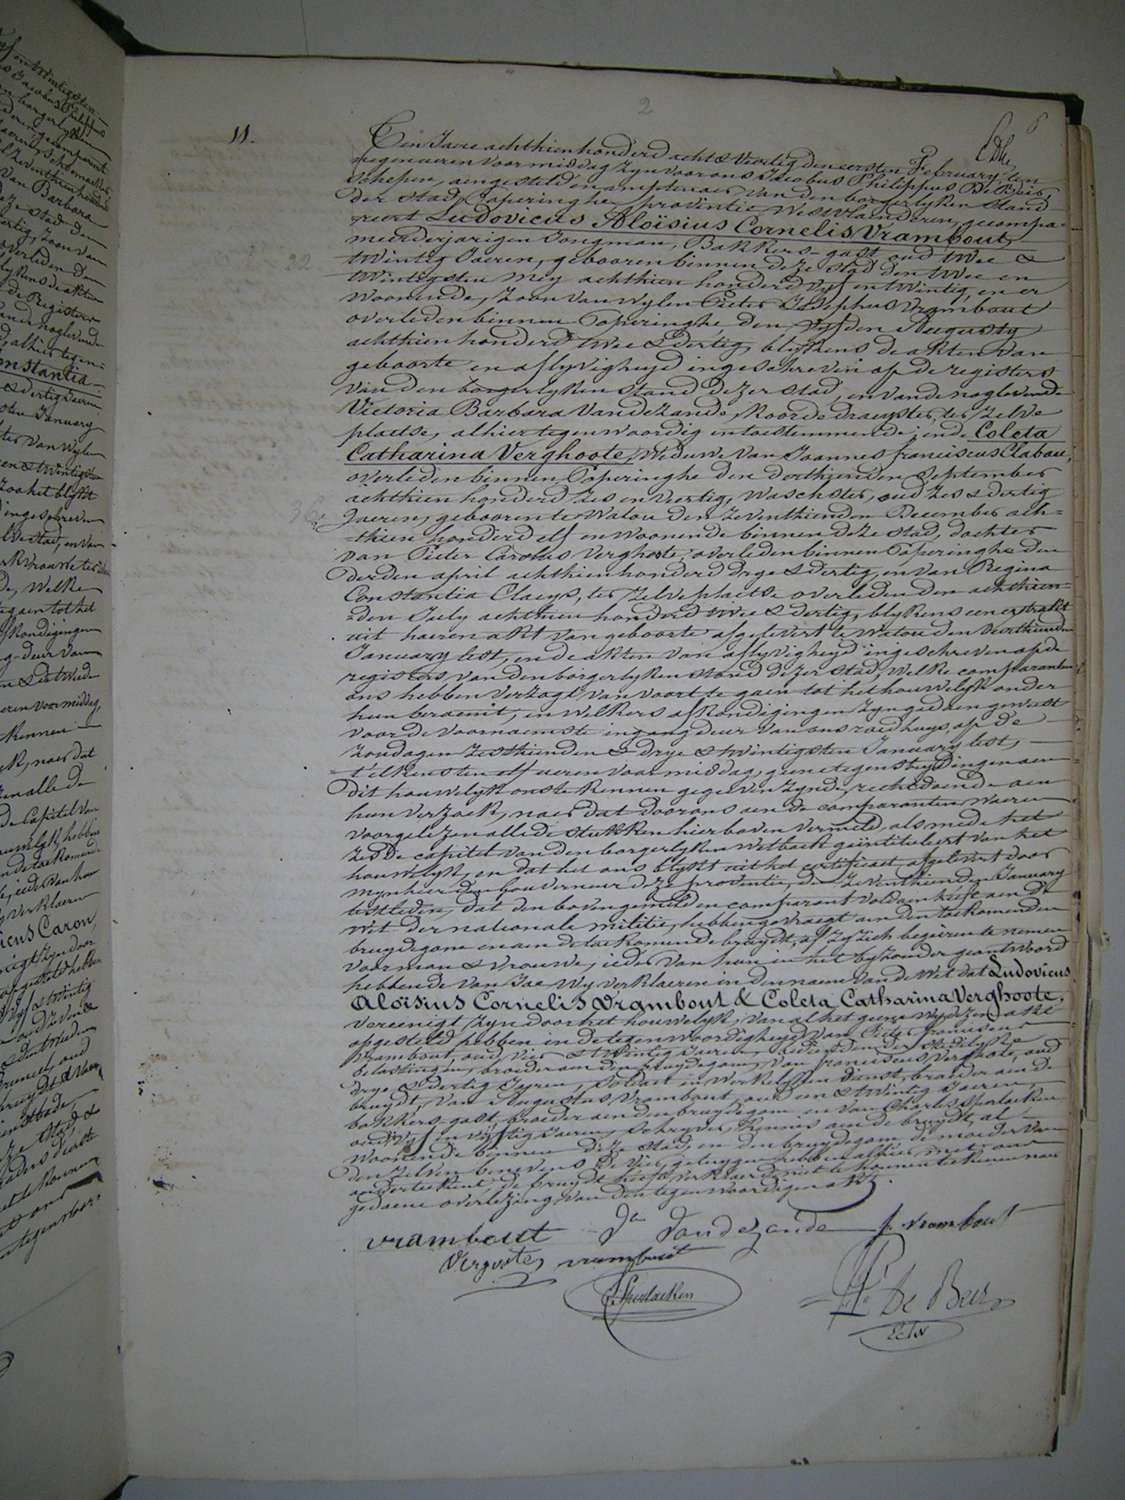 2
6
11.
Edhe
Ten Jaere achthienhonderd acht & veertig den eersten February, ten
negen ueren voormiddag zyn voor ons Jacobus Philippus De Beir,
schepen, aengesteld en amptenaer van den borgerlyken stand
der stad Poperinghe, provintie Westvlaanderen, gecompa-
reert Ludovicus Aloïsius Cornelis Vrambout,
meerderjarigen Jongman, Bakkers-gast oud twee &
22
twintig Jaeren, gebooren binnen deze stad den twee en
twintigsten Mey achthien honderd vyf en twintig, en er
woonende, zoon van wylen Pieter Josephus Vrambout
overleden binnen Poperinghe, den vyfden Augusty
achthien honderd twee & dertig, blykens de akten van
geboorte en aflyvigheyd ingeschreven op de registers
van den borgerlyken stand dezer stad, en van de nagelevende
Victoria Barbara Vandezande, Koordedraeyster, ter zelve
plaetse, alhier tegenwoordig en toestemmende; ende Coleta
Catharina Verghoote, weduwe van Joannes franciscus Clabau,
overleden binnen Poperinghe den derthienden September
achthien honderd zes en veertig, waschster, oud zes & dertig
36
Jaeren, gebooren te Watou den zeventhienden December ach-
-thien honderd elf en woonende binnen deze stad, dochter
van Pieter Carolus Verghote, overleden binnen Poperinghe den
derden april achthien honderd drye & dertig, en van Regina
Constantia Claeys, ter zelve plaetse overleden den achthien-
-den July achthien honderd twee & dertig, blykens een extrakt
uit haeren akt van geboorte afgelevert te Watou den veerthienden
January lest, en de akten van aflyvigheyd ingeschreven op de
registers van den borgerlyken stand dezer stad, welke comparanten
ons hebben verzogt van voort te gaen tot het houwelyk onder
hun beraemt, en welkers afkondigingen zyn gedaen geweest
voor de voornaemste ingang deur van ons raedhuys, op de
zondagen zesthienden & drye & twintigsten January lest,
telkens ten elf ueren voormiddag, geene tegenstrydingen aen
dit houwelyk ons te kennen gegeven zynde, rechtdoende aen
hun verzoek, naer dat door ons aen de comparanten waeren
voorgelezen alle de stukken hier boven vermeld, als mede het
zesde capitel van den borgerlyken wetboek geïntituleert van het
houwelyk, en dat het ons blykt uit het certificaet afgelevert door
mynheer den Gouverneur dezer provintie, den zeventhienden January
lestleden, dat den bovengemelden comparant voldaen heeft aen de
wet der nationale militie, hebben gevraegt aen den toekomenden
bruydegom en aen de toekomende bruydt, of zy zich begeeren te nemen
voor man & vrouwe, ieder van hun en het byzonder geantwoord
hebbende van Jae, wy verklaeren in den naem van de wet dat Ludovicus
Aloïsius Cornelis Vrambout & Coleta Catharina Verghoote,
vereenigt zyn door het houwelyk; van al het geene wy dezen akt
opgesteld hebben in de tegenwoordigheyd van Pieter franciscus
Vrambout, oud vier & twintig Jaeren, bediende der stedelyke
belastingen, broeder aen den bruydegom, van franciscus Verghote, oud
drye & dertig Jaeren, soldaet in werkelyken dienst, broeder aen de
bruydt, van Augustus Vrambout, oud een & twintig Jaeren,
bakkers-gast, broeder aen den bruydegom en van Charles Sperlaeken
oud vyf en vyftig Jaeren, schryver, kennis aen de bruydt, al
woonende binnen deze stad, en den bruydegom, de moeder van
den zelven benevens de vier getuygen hebben alhier met ons
onderteekent, de bruydt heeft verklaerd niet te konnen teekenen naer
gedaene overlezing van den tegenwoordigen akt.
vrambout Va Vandezande f. vrambout
Vergoote vrambout
C. Sperlaeken
Ph. De Beir
Echv